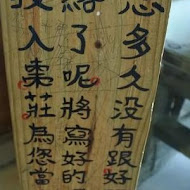 您多久没有跟好
絡了呢將寫好的
投入棗莊為您當